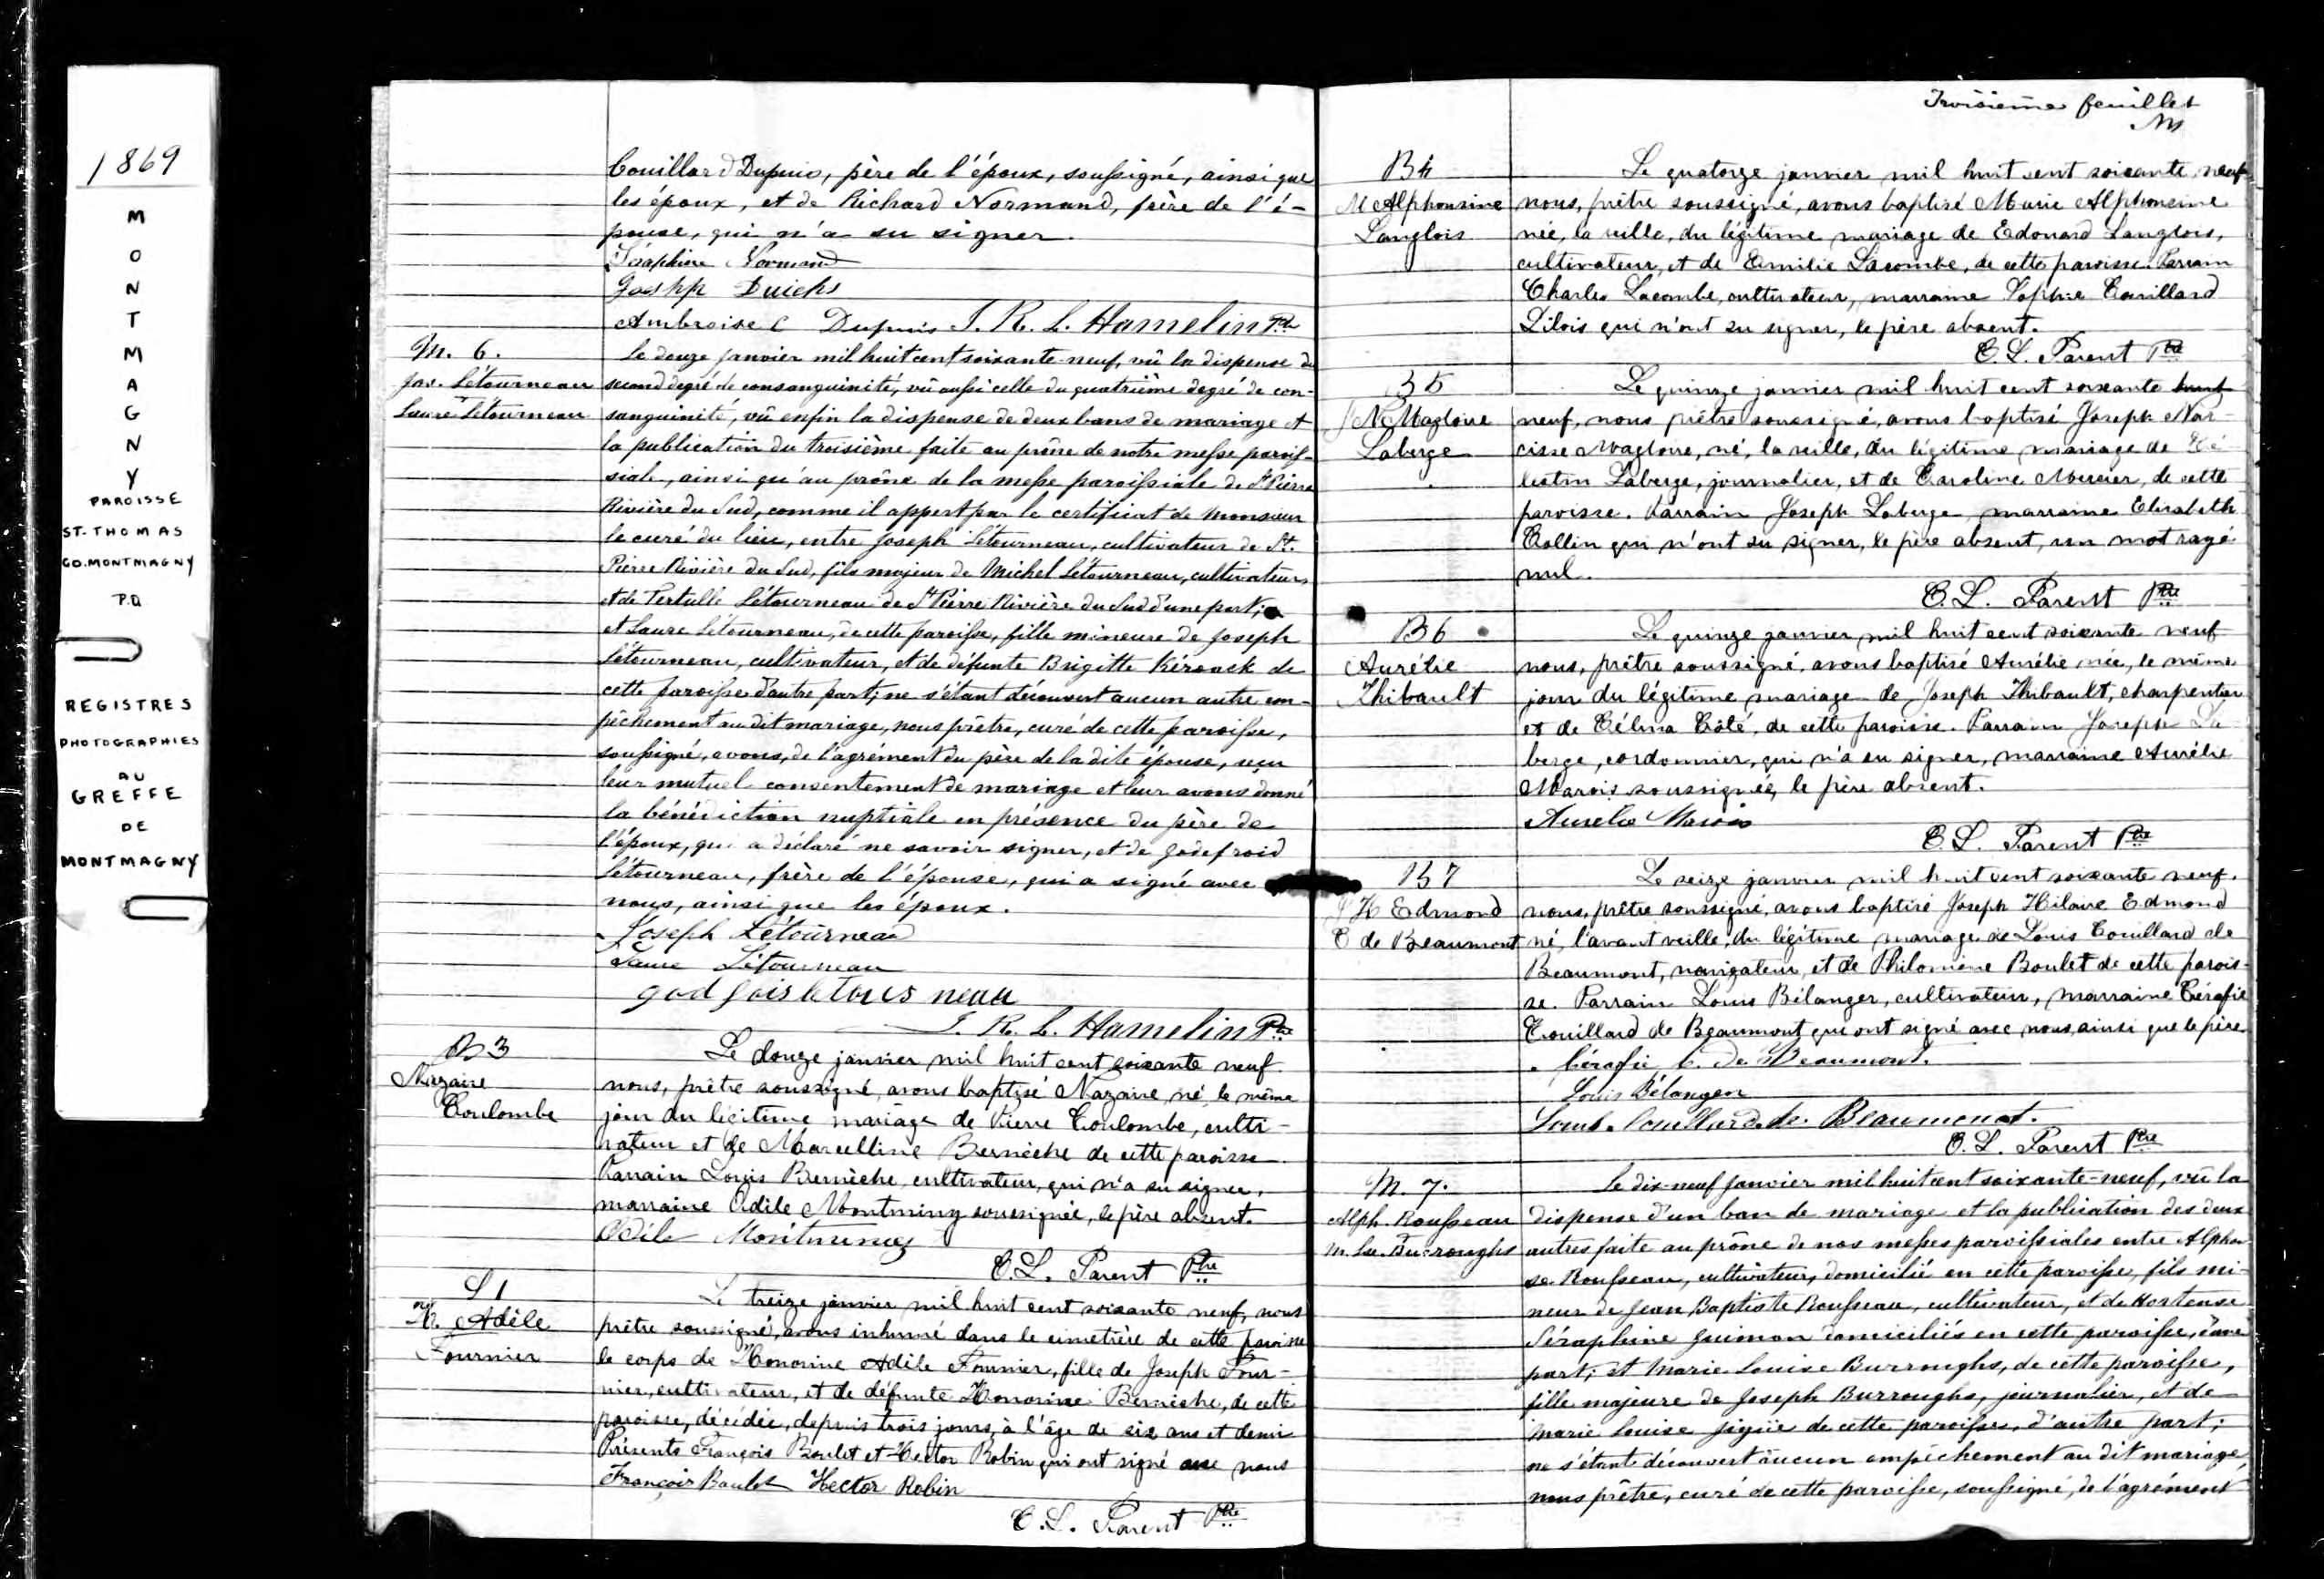 1869
MONTMAGNY
PAROISSE
ST-THOMAS
CO. MONTMAGNY
P.Q
REGISTRES
PHOTOGRAPHIES
AU
GREFFE
DE
MONTMAGNY
Couillard Dupuis, père de l'époux, soussigné, ainsi que
les époux, et de Richard Normand, frère de l'é-
pouse, qui n'a su signer.
Séraphine Normand
Ambroise C Dupuis J. R. L. Hamelin Ptre
M. 6.
Jos. Létourneau
Laure Létourneau
Le douze janvier mil huit cent soixante-neuf, vû la dispense du
second degré de consanguinité, vû aussi celle du quatrième degré de con-
sanguinité, vû enfin la dispense de deux bans de mariage et
la publication du troisième faite au prône de notre messe parois-
siale, ainsi qu'au prône de la messe paroissiale de St Pierre
Rivière du Sud, comme il appert par le certificat de Monsieur
le curé du lieu, entre Joseph Létourneau, cultivateur de St.
Pierre Rivière du Sud, fils majeur de Michel Létourneau, cultivateur,
et de Tertulle Létourneau de St Pierre Rivière du Sud d'une part;
et Laure Létourneau, de cette paroisse, fille mineure de Joseph
Létourneau, cultivateur, et de défunte Brigitte Kérouack de
cette paroisse d'autre part; ne s'étant découvert aucun autre em-
pêchement au dit mariage, nous prêtre, curé de cette paroisse,
soussigné, avons, de l'agrément du père de la dite épouse, reçu
leur mutuel consentement de mariage et leur avons donné
la bénédiction nuptiale en présence du père de
l'époux, qui a déclaré ne savoir signer, et de Godefroid
Létourneau, frère de l'épouse, qui a signé avec
nous, ainsi que les époux.
Joseph Létourneau
Laure Létourneau
J. R. L. Hamelin Ptre
B 3
Nazaire
Coulombe
Le douze janvier mil huit cent soixante neuf
nous, prêtre soussigné, avons baptisé Nazaire, né, le même
jour du légitime mariage de Pierre Coulombe, culti-
vateur et de Marcelline Bernèche de cette paroisse
Parrain Louis Bernèche, cultivateur, qui n'a su signer,
marraine Odile Montminy soussignée, le père absent.
Odile Montminy
C. L. Parent Ptre
S 1
Adèle
Fournier
Le treize janvier mil huit cent soixante neuf, nous
prêtre soussigné, avons inhumé dans le cimetière de cette paroisse
le corps de Honorine Adèle Fournier, fille de Joseph Four-
nier, cultivateur, et de défunte Honorine Bernèche, de cette
paroisse, décédée, depuis trois jours, à l'âge de six ans et demi
Présents François Boulet et Hector Robin qui ont signé avec nous
François Boulet Hector Robin
C. L. Parent Ptre
Troisième feuillet
B 4
M Alphonsine
Langlois
Le quatorze janvier mil huit cent soixante neuf
nous, prêtre soussigné, avons baptisé Marie Alphonsine
née, la veille, du légitime mariage de Edouard Langlois,
cultivateur, et de Emilie Lacombe, de cette paroisse. Parrain
Charles Lacombe, cultivateur, marraine Sophie Couillard
Lilois qui n'ont su signer, le père absent.
C. L. Parent Ptre
B 5
J N Magloire
Laberge
Le quinze janvier mil huit cent soixante huit
neuf, nous prêtre soussigné, avons baptisé Joseph Nar-
cisse Magloire, né, la veille, du légitime mariage de Cé-
lestin Laberge, journalier, et de Caroline Mercier, de cette
paroisse. Parrain Joseph Laberge marraine Elisabeth
Collin qui n'ont su signer, le père absent, un mot rayé
nul.
C. L. Parent Ptre
B 6
Aurélie
Thibault
Le quinze janvier mil huit cent soixante neuf
nous, prêtre soussigné, avons baptisé Aurélie née, le même
jour du légitime mariage de Joseph Thibault, charpentier
et de Célina Côté, de cette paroisse. Parrain Joseph La-
berge, cordonnier, qui n'a su signer, marraine Aurélie
Marois soussignée, le père absent.
Aurelie Marois
C. L. Parent Ptre
B 7
J H Edmond
C de Beaumont
Le seize janvier mil huit cent soixante neuf.
nous, prêtre soussigné, avons baptisé Joseph Hilaire Edmond
né, l'avant veille, du légitime mariage de Louis Couillard de
Beaumont, navigateur, et de Philomène Boulet de cette parois-
se. Parrain Louis Bélanger, cultivateur, marraine Cérafie
Couillard de Beaumont qui ont signé avec nous, ainsi que le père
Cérafie C. de Beaumont.
Louis Bélanger
Louis Couillard de Beaumont.
C. L. Parent Ptre
M. 7.
Alph. Rousseau
M. Lse Burroughs
Le dix-neuf janvier mil huit cent soixante-neuf, vû la
dispense d'un ban de mariage et la publication des deux
autres faite au prône de nos messes paroissiales entre Alphon
se Rousseau, cultivateur, domicilié en cette paroisse, fils mi-
neur de Jean Baptiste Rousseau, cultivateur, et de Hortense
Séraphine Guimon domiciliés en cette paroisse, d'une
part; et Marie Louise Burroughs, de cette paroisse,
fille majeure de Joseph Burroughs, journalier, et de
Marie Louise Gigüe de cette paroisse, d'autre part;
ne s'étant découvert aucun empêchement au dit mariage
nous prêtre, curé de cette paroisse, soussigné, de l'agrément